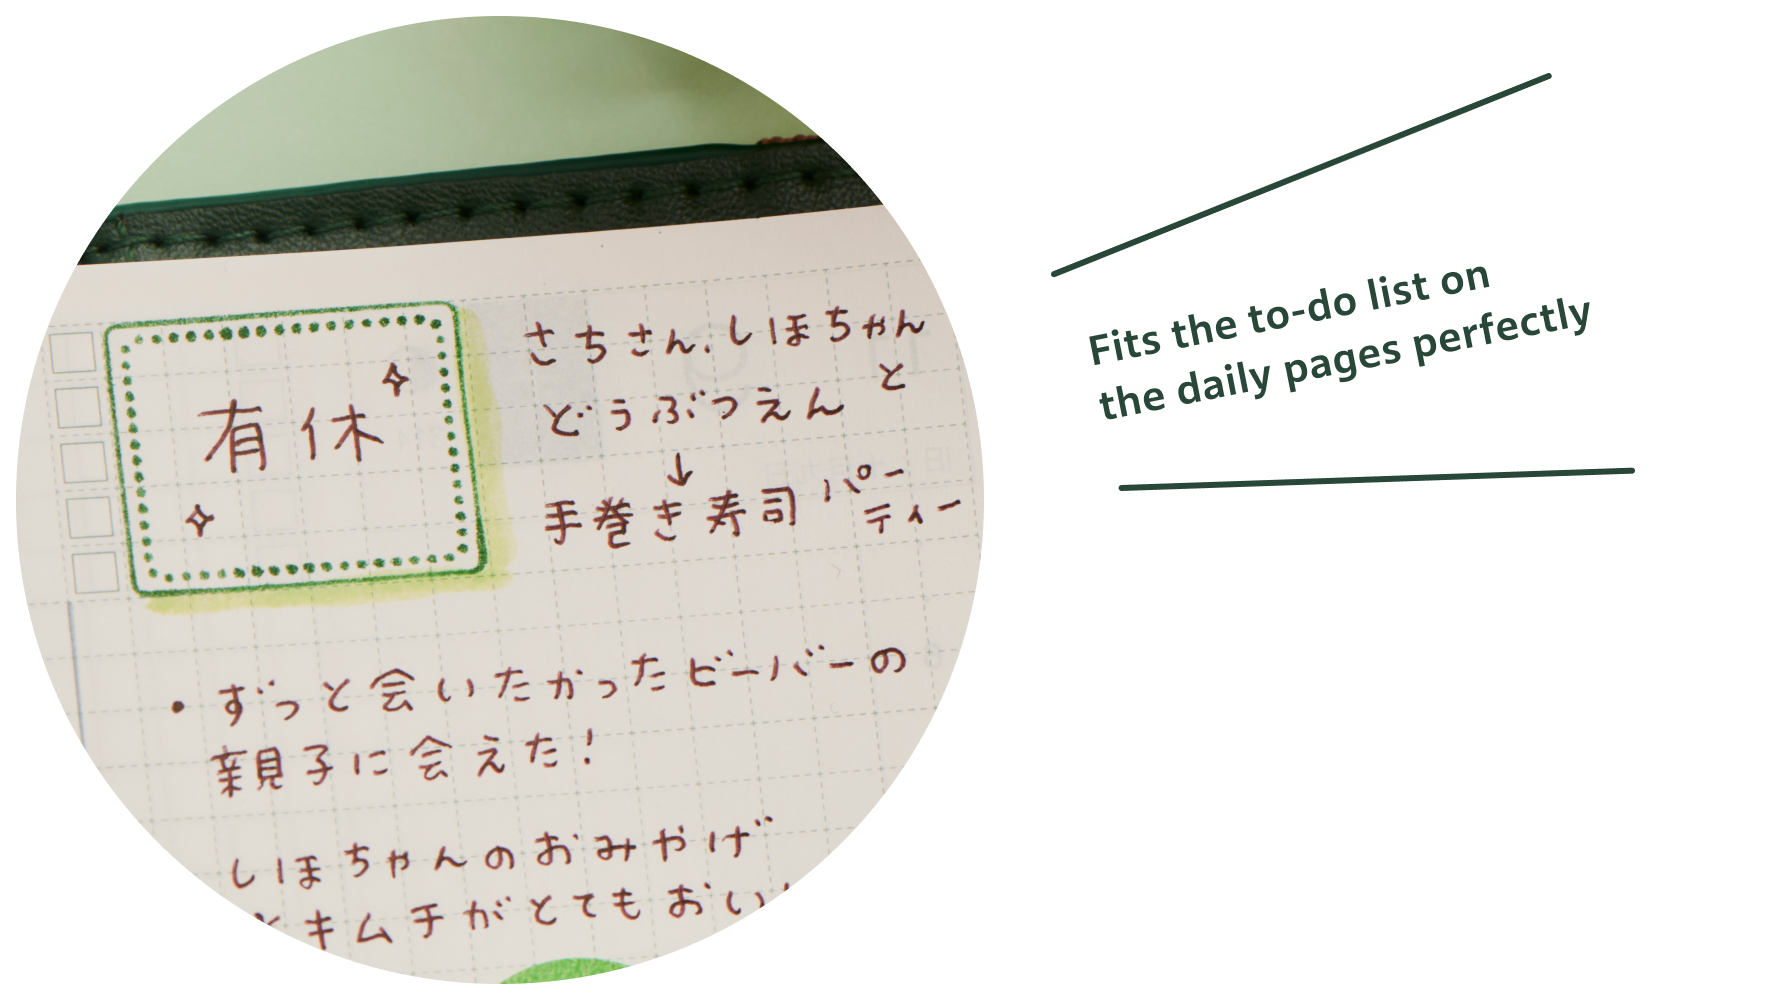 有休
さちさん、しほちゃん
と
どうぶつえん
↓
手巻き寿司パー
ティー
・ずっと会いたかったビーバーの
親子に会えた!
しほちゃんのおみやげ
キムチがとてもおい
Fits the to-do list on
the daily pages perfectly